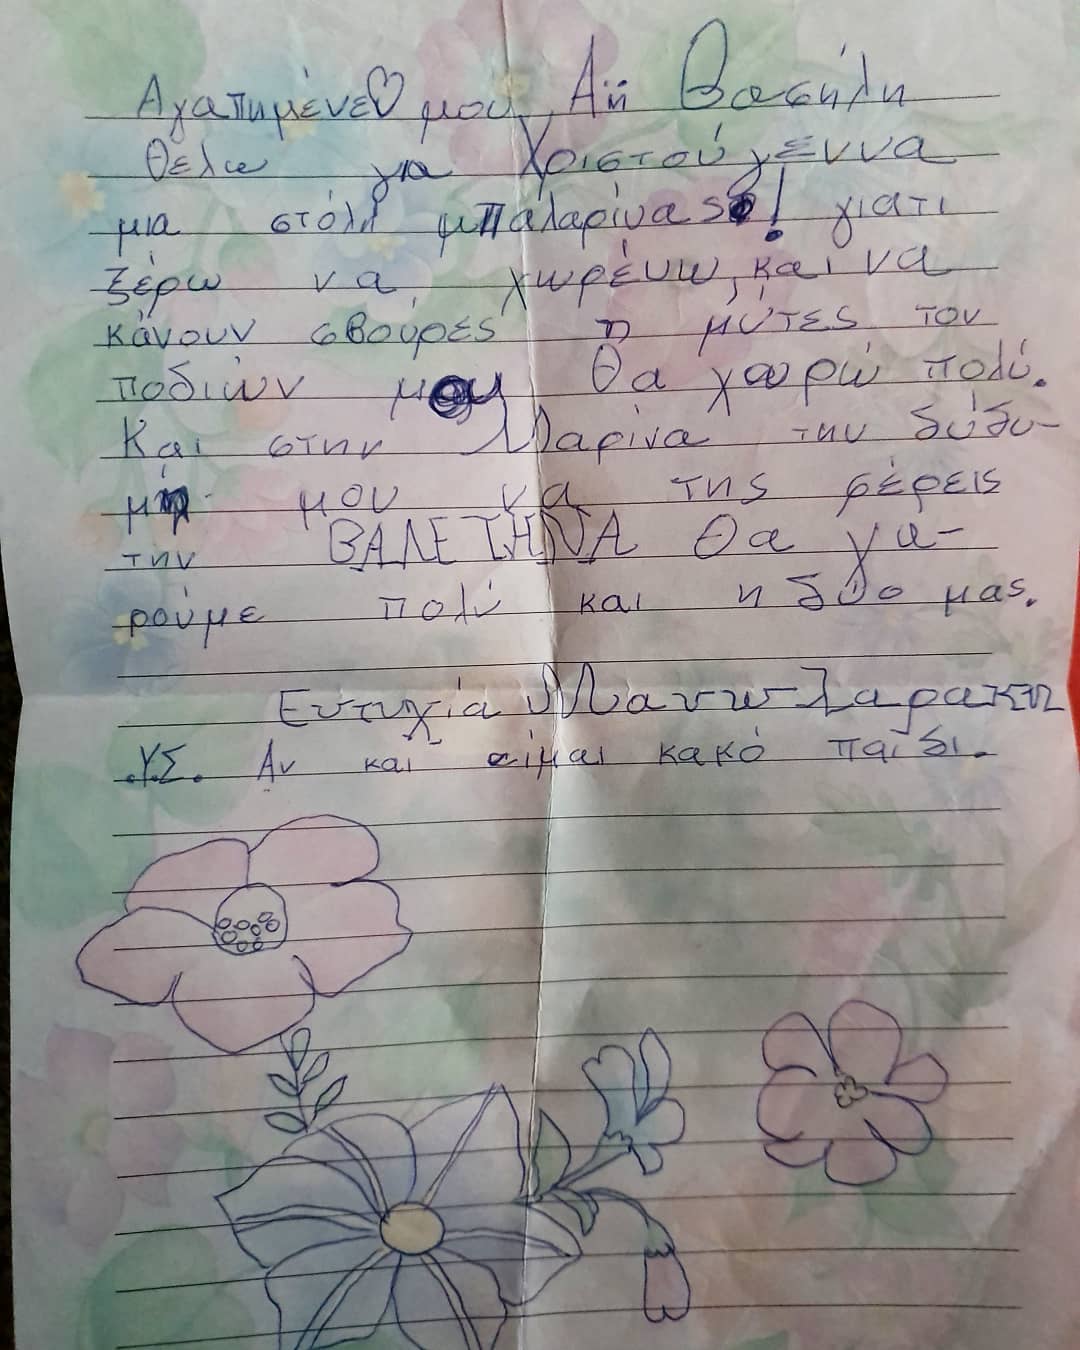 Αγαπημένε♡ μου, Αη Βασήλη
Θελω για Χριστούγεννα
μια στόλη μπαλαρίνας! γιατι
ξέρω να χωρέυω, και να
κάνουν σβουρές η μύτες τον
ποδιών μου Θα χαρώ πολύ.
Και στην Μαρίνα την δύδυ-
μη μου να της φέρεις
την ΒΑΛΕΤΗΝΑ Θα χα-
ρούμε πολύ και η δύο μας.
Ευτυχία
.Υ.Σ. Αν και είμαι κακό παίδι.